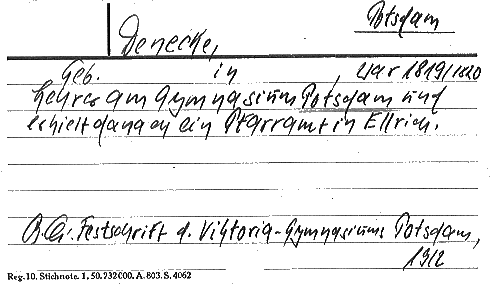 Potsdam
Denecke,
Geb. in , war 1819/1820
Lehrer am Gymnasium Potsdam und
erhielt danach ein Pfarramt in Ellrich.
Festschrift d. Viktoria-Gymnasiums Potsdam,
1912
Reg. 10. Stichnote. 1, 50. 732000. A. 803. S. 4062